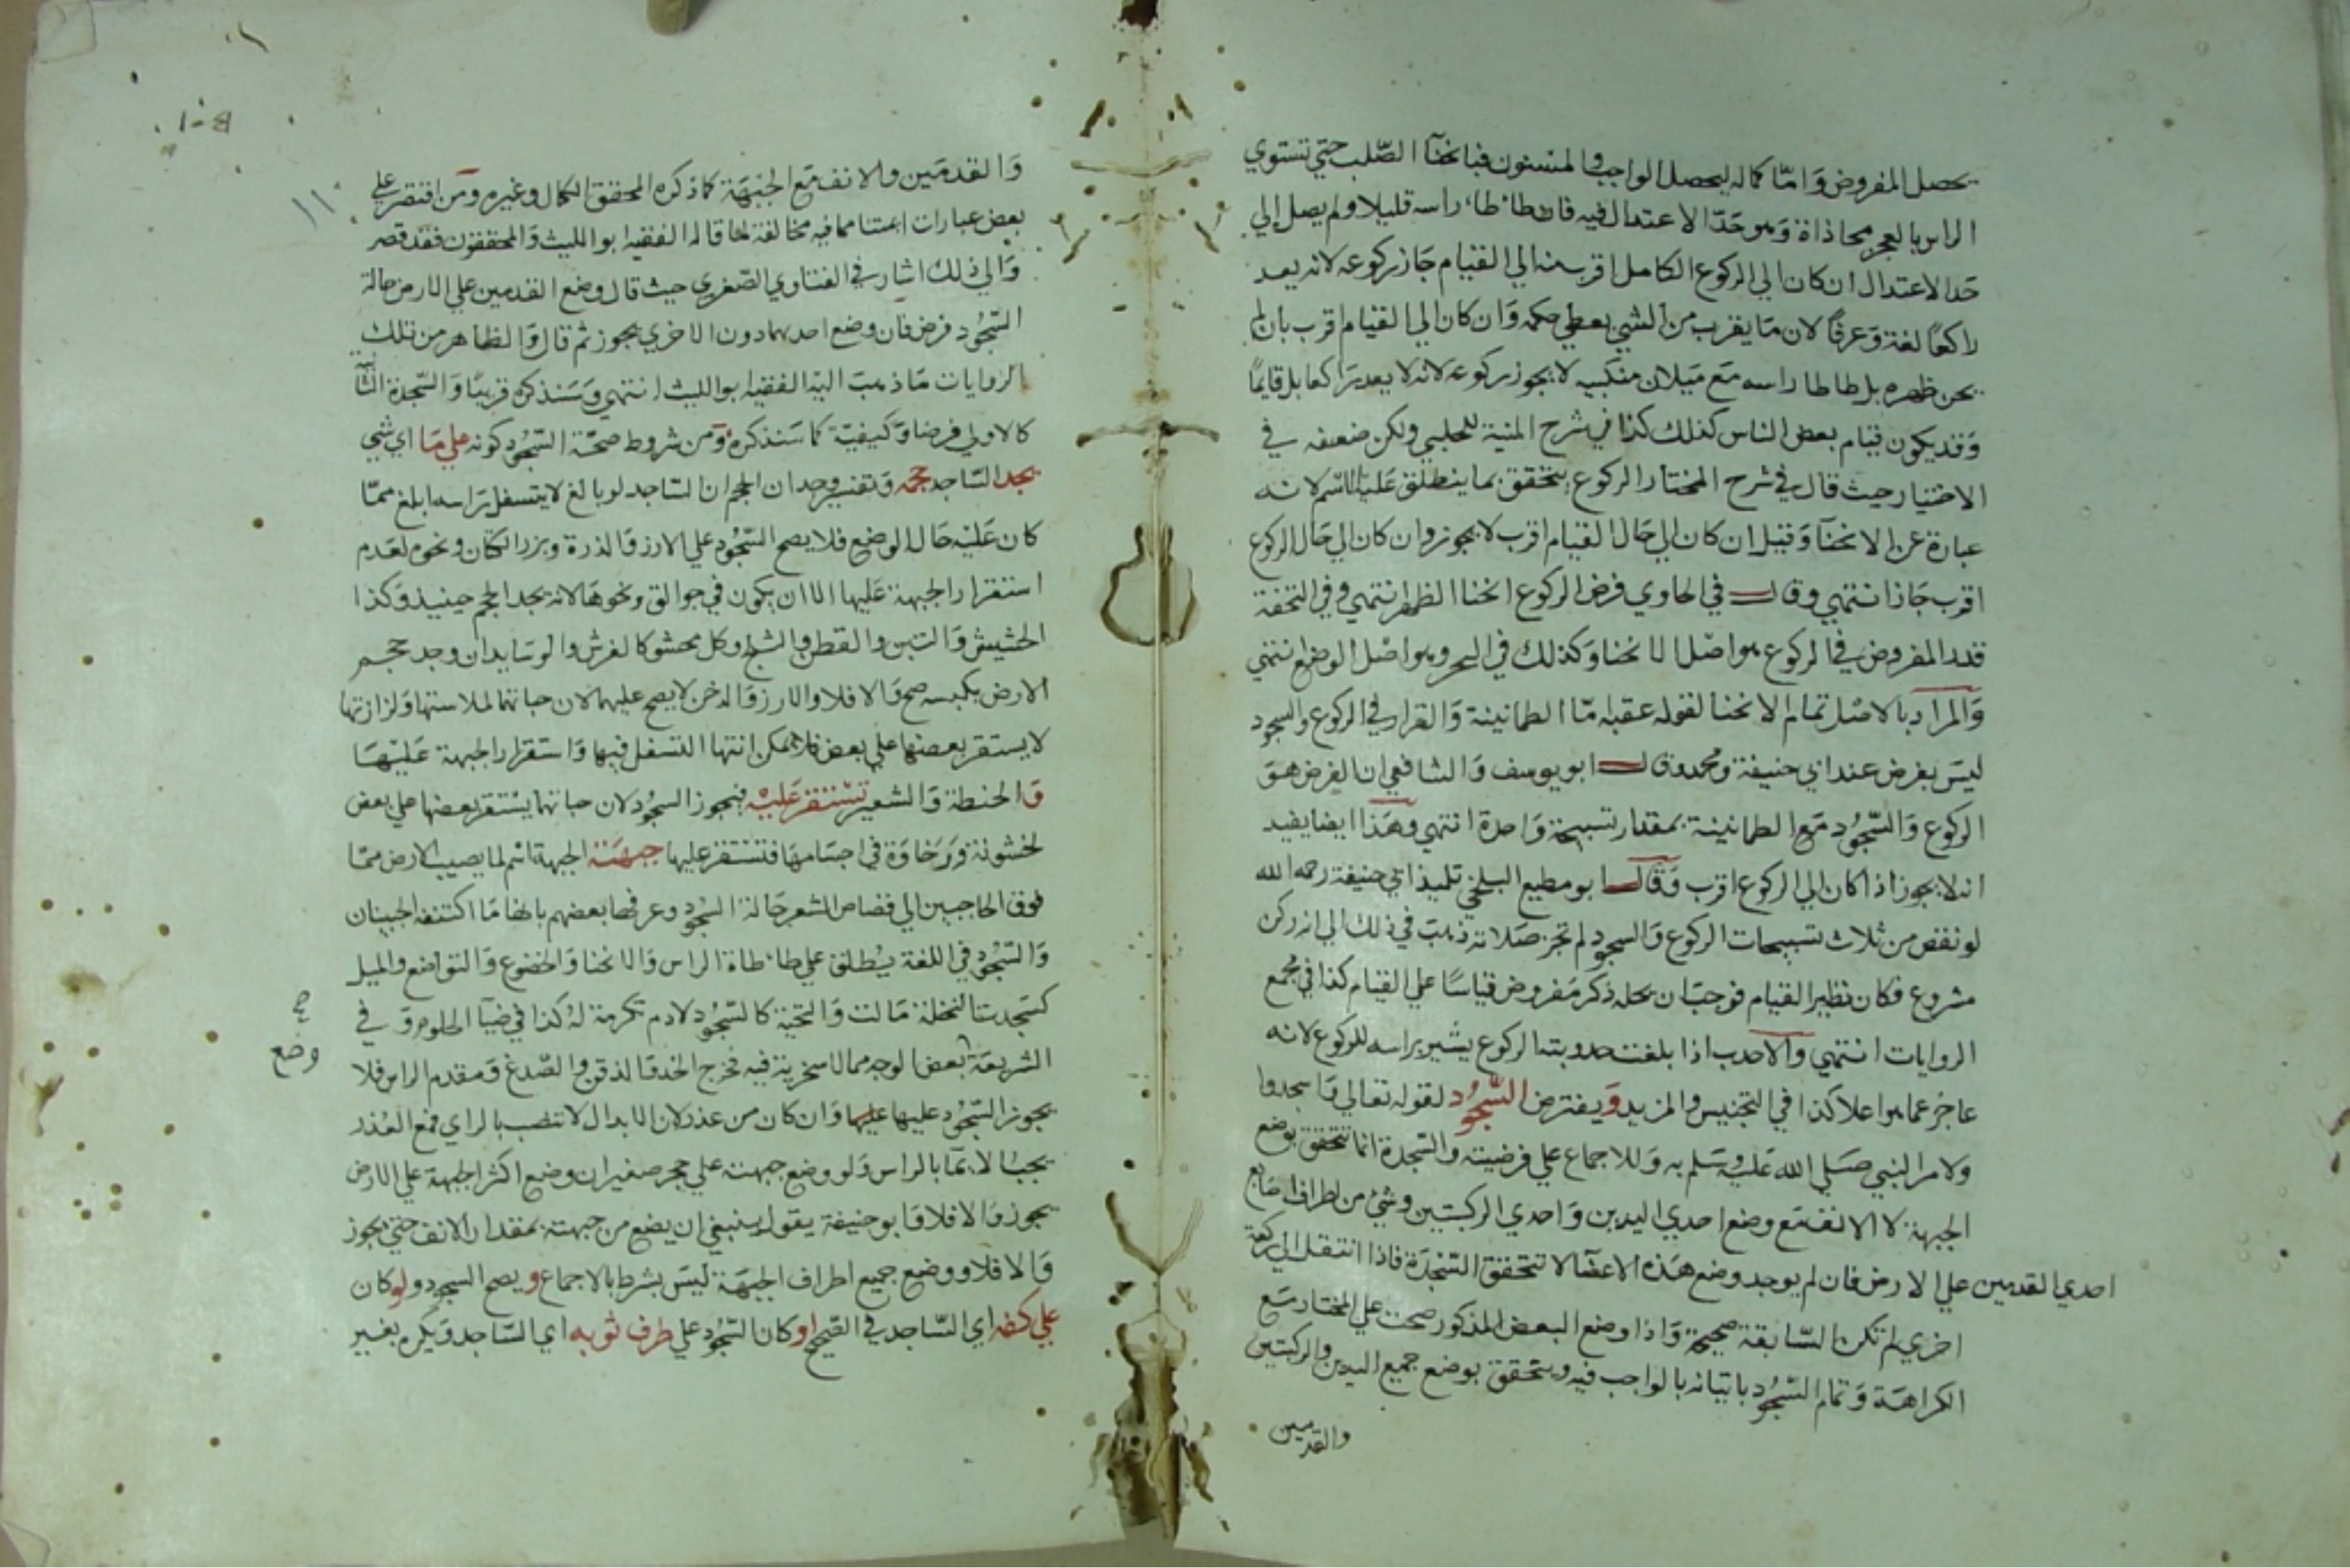 يحصل المفروض واما كماله ليحصل الواجب والمسنون فبانحنآ الصّلب حتي تستوي
الراس بالعجز محاذاة وهو حدّ الاعتدال فيه فان طاطا راسه قليلا ولم يصل الي
حد الاعتدال ان كان الي الركوع الكامل اقرب منه الي القيام جاز ركوعه لانه يعد
راكعًا لغة وعرفًا لان ما يقرب من الشي يعطي حكمه وان كان الي القيام اقرب بان لم
يحن ظهره بل طاطا راسه مع ميلان منكبيه لا يجوز ركوعه لانه لا يعد راكعا بل قايمًا
وقد يكون قيام بعض الناس كذلك كذا في شرح المنية للحلبي ولكن ضعفه في
الاختيار حيث قال في شرح المختار الركوع يتحقق بما ينطلق عليه الاسم لانه
عبارة عن الانحنآ وقيل ان كان الي حال القيام اقرب لا يجوز وان كان الي حال الركوع
اقرب جاز انتهي وقال في الحاوي فرض الركوع انحنا الظهر انتهي وفي التحفة
قدر المفروض في الركوع هو اصل الانحنا وكذلك في السجود هو اصل الوضع انتهي
والمراد بالاصل تمام الانحنا لقوله عقبه امّا الطمانينة والقرار في الركوع والسجود
ليس بفرض عند ابي حنيفة ومحمد وقال ابو يوسف والشافعي ان الفرض هو
الركوع والسّجود مع الطمانينة بمقدار تسبيحة واحدة انتهي وهذا ايضا يفيد
انه لا يجوز اذا كان الي الركوع اقرب وقال ابو مطيع البلخي تلميذ ابي حنيفة رحمه الله
لو نقص من ثلاث تسبيحات الركوع والسجود لم تجز صلاته ذهب في ذلك الي انه ركن
مشروع فكان نظير القيام فوجب ان يحله ذكر مفروض قياسًا علي القيام كذا في مجمع
الروايات انتهي والاحدب اذا بلغت حدوبته الركوع يشير براسه للركوع لانه
عاجز عما هو اعلا كذا في التجنيس والمزيد ويفترض السّجود لقوله تعالي واسجدوا
ولامر النبي صلي الله عليه وسلم به وللاجماع علي فرضيته والسّجدة انما تتحقق بوضع
الجبهة لا الانف مع وضع احدي اليدين واحدي الركبتين وشي من اطراف اصابع
احدي القدمين علي الارض فان لم يوجد وضع هذه الاعضآ لا تتحقق السّجدة فاذا انتقل الي ركعة
اخري لم تكن السّابقة صحيحة واذا وضع البعض المذكور صحت علي المختار مع
الكراهة وتمام السّجود باتيانه بالواجب فيه ويتحقق بوضع جميع اليدين والركبتين
والقدمين
١١٠
والقدمين والانف مع الجبهة كما ذكره المحقق الكمال وغيره ومن اقتصر علي
بعض عبارات ائمتنا مما فيه مخالفة لما قاله الفقيه ابو الليث والمحققون فقد قصر
والي ذلك اشار في الفتاوي الصّغري حيث قال وضع القدمين علي الارض حالة
السّجود فرض فان وضع احديهما دون الاخري يجوز ثم قال والظاهر من تلك
الروايات ما ذهب اليه الفقيه ابو الليث انتهي وسنذكره قريبًا والسّجدة الثانية
كالاولي فرضا وكيفيّة كما سنذكره ومن شروط صحّة السّجود كونه علي ما اي شي
يجد السّاجد حجمه وتفسير وجدان الحجم ان السّاجد لو بالغ لا يتسفل راسه ابلغ ممّا
كان عليه حال الوضع فلا يصح السّجود علي الارز والذرة وبزر الكتان ونحوه لعدم
استقرار الجبهة عليها الا ان يكون في جوالق ونحوها لانه يجد الحجم حينيذ وكذا
الحشيش والتبن والقطن والثلج وكل محشو كالفرش والوسايد ان وجد حجم
الارض بكبسه صح والا فلا والارز والدخن لا يصح عليهما لان حباتهما لملاستها ولزازتها
لا يستقر بعضها علي بعض فلا يمكن انتها التسفل فيها واستقرار الجبهة عليها
والحنطة والشعير تستقر عليه فيجوز السجود لان حباتهما يستقر بعضها علي بعض
لخشونة ورخاوة في اجسامها فتستقر عليها جبهته الجبهة اسم لما يصيب الارض ممّا
فوق الحاجبين الي قصاص الشعر حالة السجود وعرفها بعضهم بانها ما اكتنفه الجبينان
والسّجود في اللغة يطلق علي طاطاة الراس والانحنا والخضوع والتواضع والميل
كسجدت النخلة مالت والتحية كالسّجود لادم تكرمة له كذا في ضيآ الحلوم وفي
الشريعة بعض الوجه مما لا سخرية فيه فخرج الخد والذقن والصّدغ ومقدم الراس فلا
وضع
يجوز السّجود عليها وان كان من عذر لان الابدال لا تنصب بالراي فمع العذر
يجب الايمآ بالراس ولو وضع جبهته علي حجر صغير ان وضع اكثر الجبهة علي الارض
يجوز والا فلا وابو حنيفة يقول ينبغي ان يضع من جبهته بمقدار الانف حتي يجوز
والا فلا ووضع جميع اطراف الجبهة ليس بشرط بالاجماع ويصح السجود ولو كان
علي كفه اي السّاجد في الصّحيح او كان السّجود علي طرف ثوبه اي السّاجد ويكره بغير